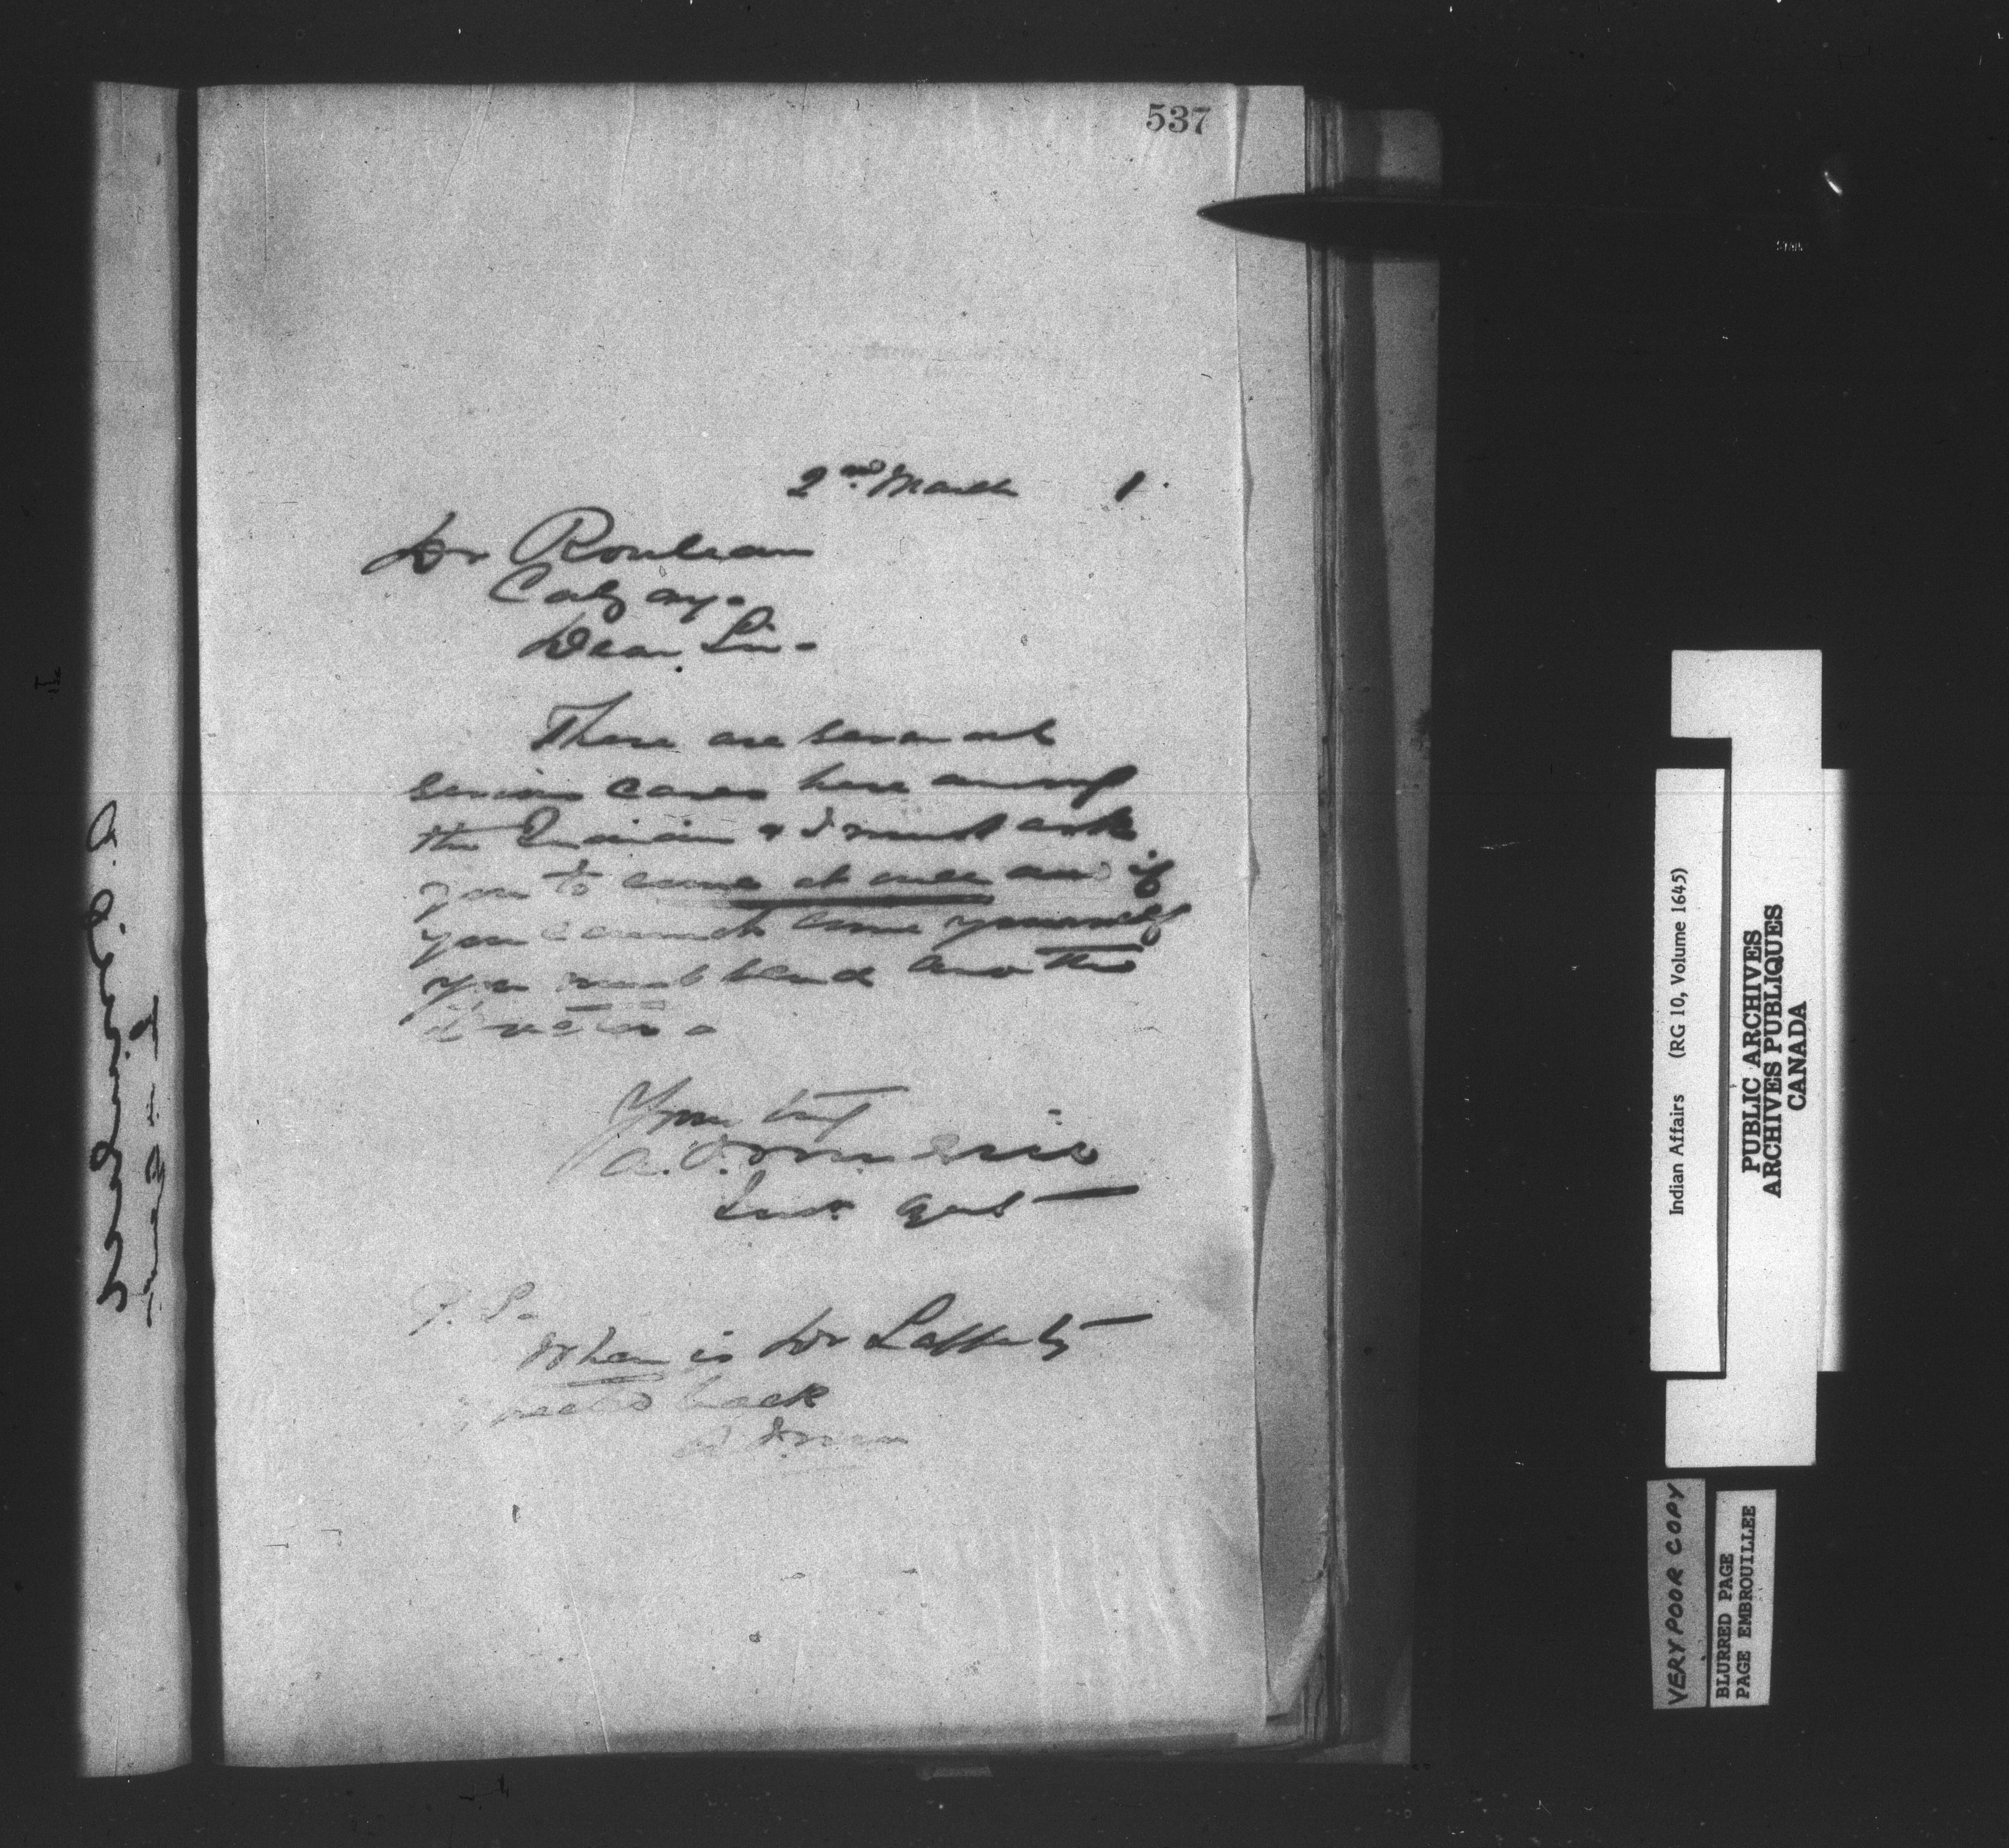 537
2nd March 1.
Dr Rouleau
Calgary.
Dear Sir.
There are several
serious cases here amongst
the Indians & I must ask
you to come at once and if
you cannot come yourself
you must send another
doctor.
Yours truly
A. J. McNeill
Ind. Agent
P.S.
When is Dr Lafferty
expected back
Indian Affairs (RG 10, Volume 1645)
PUBLIC ARCHIVES
ARCHIVES PUBLIQUES
CANADA
VERY POOR COPY
BLURRED PAGE
PAGE EMBROUILLEE